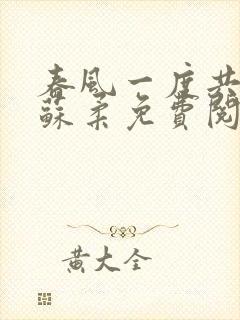 春風一度共
蘇柔免費閱
黃大全